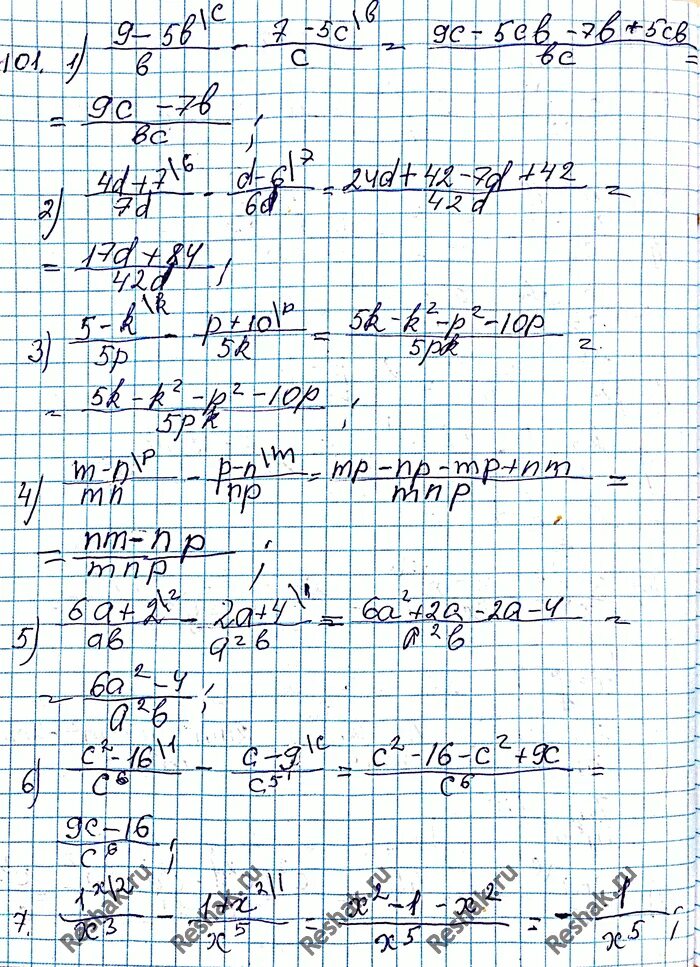 101. 1) (9 - 5в\c)/в - (7 - 5c\в)/c = (9c - 5cв - 7в + 5cв)/вc =
= (9c - 7в)/вc ;
2) (4d + 7\6)/7d - (d - 6\7)/6d = (24d + 42 - 7d + 42)/42d =
= (17d + 84)/42d ;
3) (5 - k\k)/5p - (p + 10\p)/5k = (5k - k² - p² - 10p)/5pk =
= (5k - k² - p² - 10p)/5pk ;
4) (m - n\p)/mn - (p - n\m)/np = (mp - np - mp + nm)/mnp =
= (nm - np)/mnp ;
5) (6a + 2\²)/aв - (2a + 4\1)/a²в = (6a² + 2a - 2a - 4)/a²в =
= (6a² - 4)/a²в ;
6) (c² - 16\1)/c⁶ - (c - 9\c)/c⁵ = (c² - 16 - c² + 9c)/c⁶ =
(9c - 16)/c⁶ ;
7. (1\x²)/x³ - (1 + x²\1)/x⁵ = (x² - 1 - x²)/x⁵ = - 1/x⁵ ;
Reshak.ru Reshak.ru Reshak.ru Reshak.ru Reshak.ru